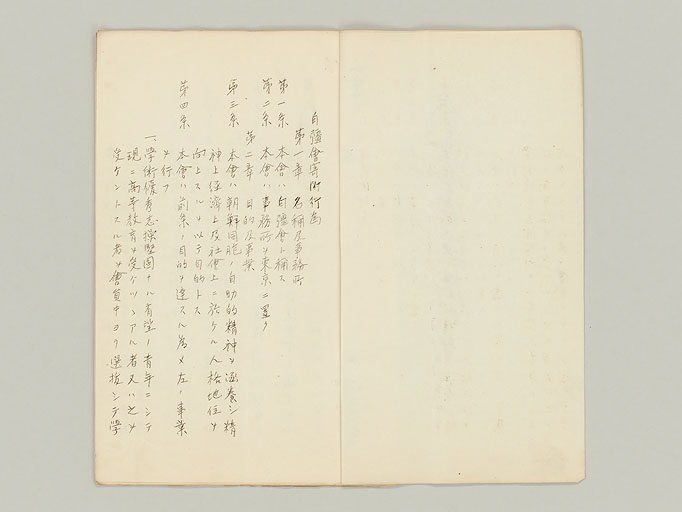 自彊會寄附行為
第一章 名稱及事務所
第一条 本會ハ自彊會ト稱ス
第二条 本會ハ事務所ヲ東京ニ置ク
第二章 目的及事業
第三条 本會ハ朝鮮同胞ノ自助的精神ヲ涵養シ精
神上経濟上及社會上ニ於ケル人格地位ヲ
向上スルヲ以テ目的トス
第四条 本會ハ前条ノ目的ヲ達スル為メ左ノ事業
ヲ行フ
一、學術優秀志操堅固ナル有望ノ青年ニシテ
現ニ高等教育ヲ受ケツヽアル者又ハ之ヲ
受ケントスル者ヲ會員中ヨリ選抜シテ學